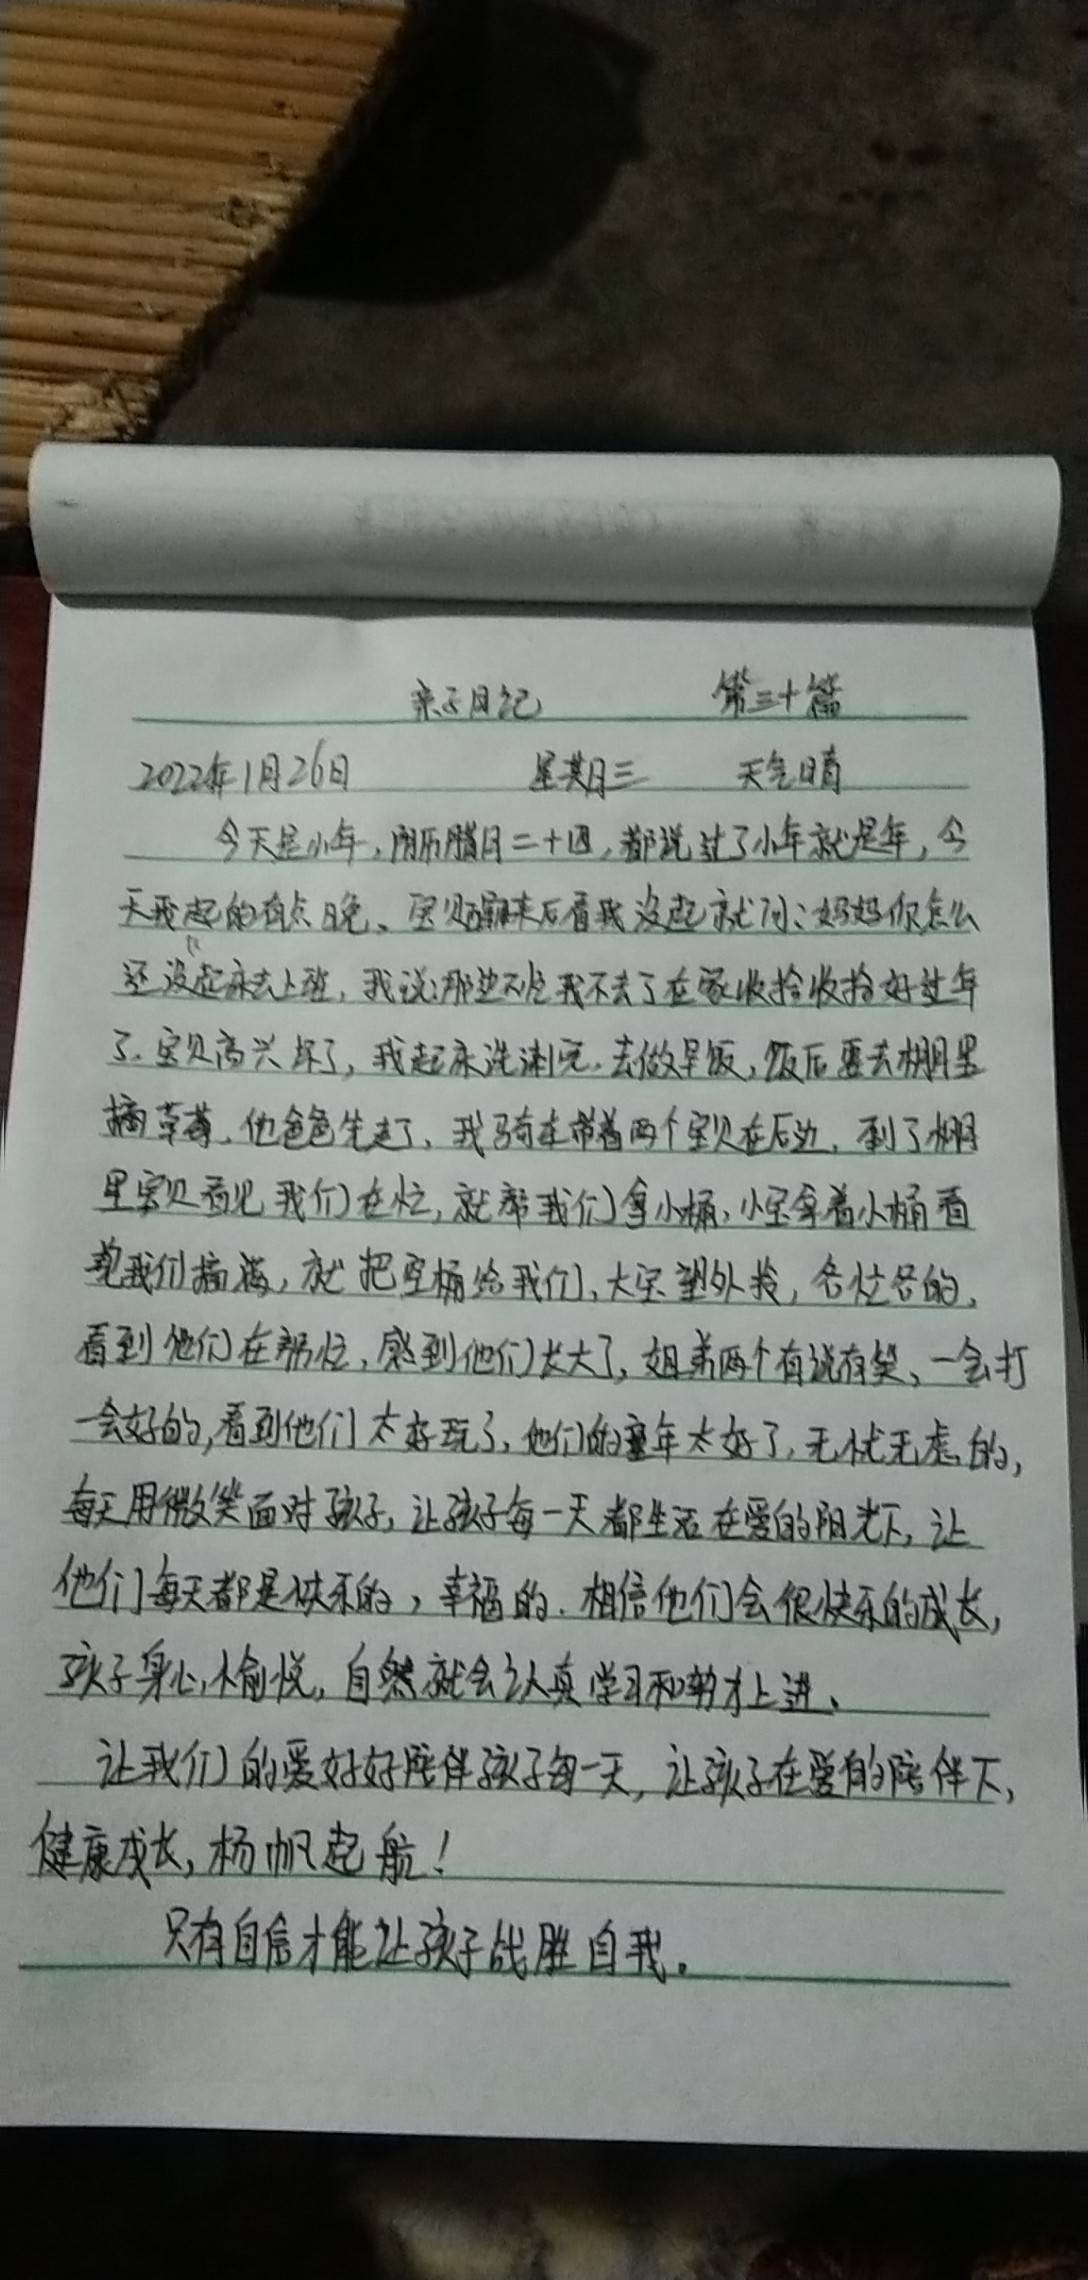 亲子日记 第三十篇
2022年1月26日 星期三 天气晴
今天是小年,阴历腊月二十四,都说过了小年就是年,今
天我起的有点晚、宝贝醒来后看我没起就问:妈妈你怎么
还没起床去上班,我说:那边不忙我不去了在家收拾收拾好过年
了.宝贝高兴坏了,我起床洗漱完.去做早饭,饭后要去棚里
摘草莓.他爸爸先走了、我骑车带着两个宝贝在后边,到了棚
里宝贝看见我们在忙,就帮我们拿小桶,小宝拿着小桶看
我们摘满,就把空桶给我们、大宝望外拎,各忙各的,
看到他们在帮忙、感到他们长大了,姐弟两个有说有笑、一会打
一会好的,看到他们太好玩了、他们的童年太好了,无忧无虑的,
每天用微笑面对孩子,让孩子每一天都生活在爱的阳光下,让
他们每天都是快乐的,幸福的.相信他们会很快乐的成长,
孩子身心愉悦,自然就会认真学习和努力上进、
让我们的爱好好陪伴孩子每一天,让孩子在爱的陪伴下,
健康成长,杨帆起航!
只有自信才能让孩子战胜自我。